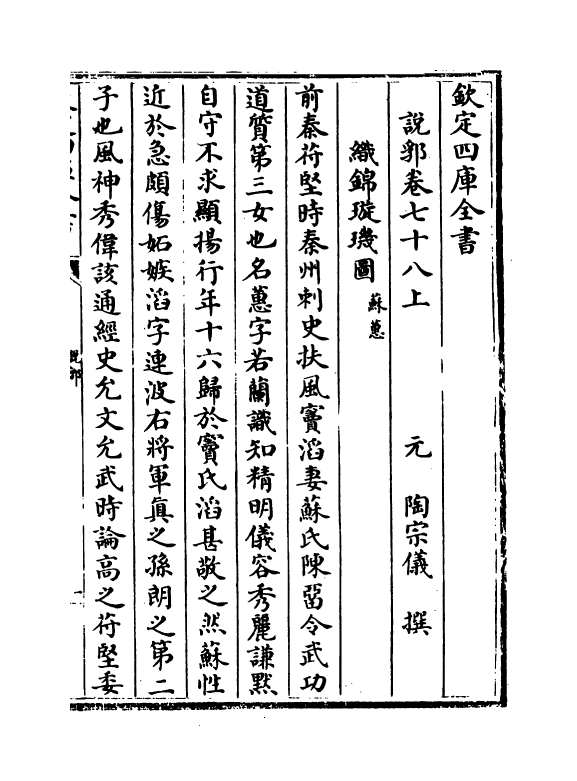 欽定四庫全書
說郛卷七十八上　元　陶宗儀　撰
織錦璇璣圖 蘇蕙
前秦苻堅時秦州刺史扶風竇滔妻蘇氏陳留令武功
道質第三女也名蕙字若蘭識知精明儀容秀麗謙默
自守不求顯揚行年十六歸於竇氏滔甚敬之然蘇性
近於急頗傷妬嫉滔字連波右將軍眞之孫朗之第二
子也風神秀偉該通經史允文允武時論高之苻堅委
說郛